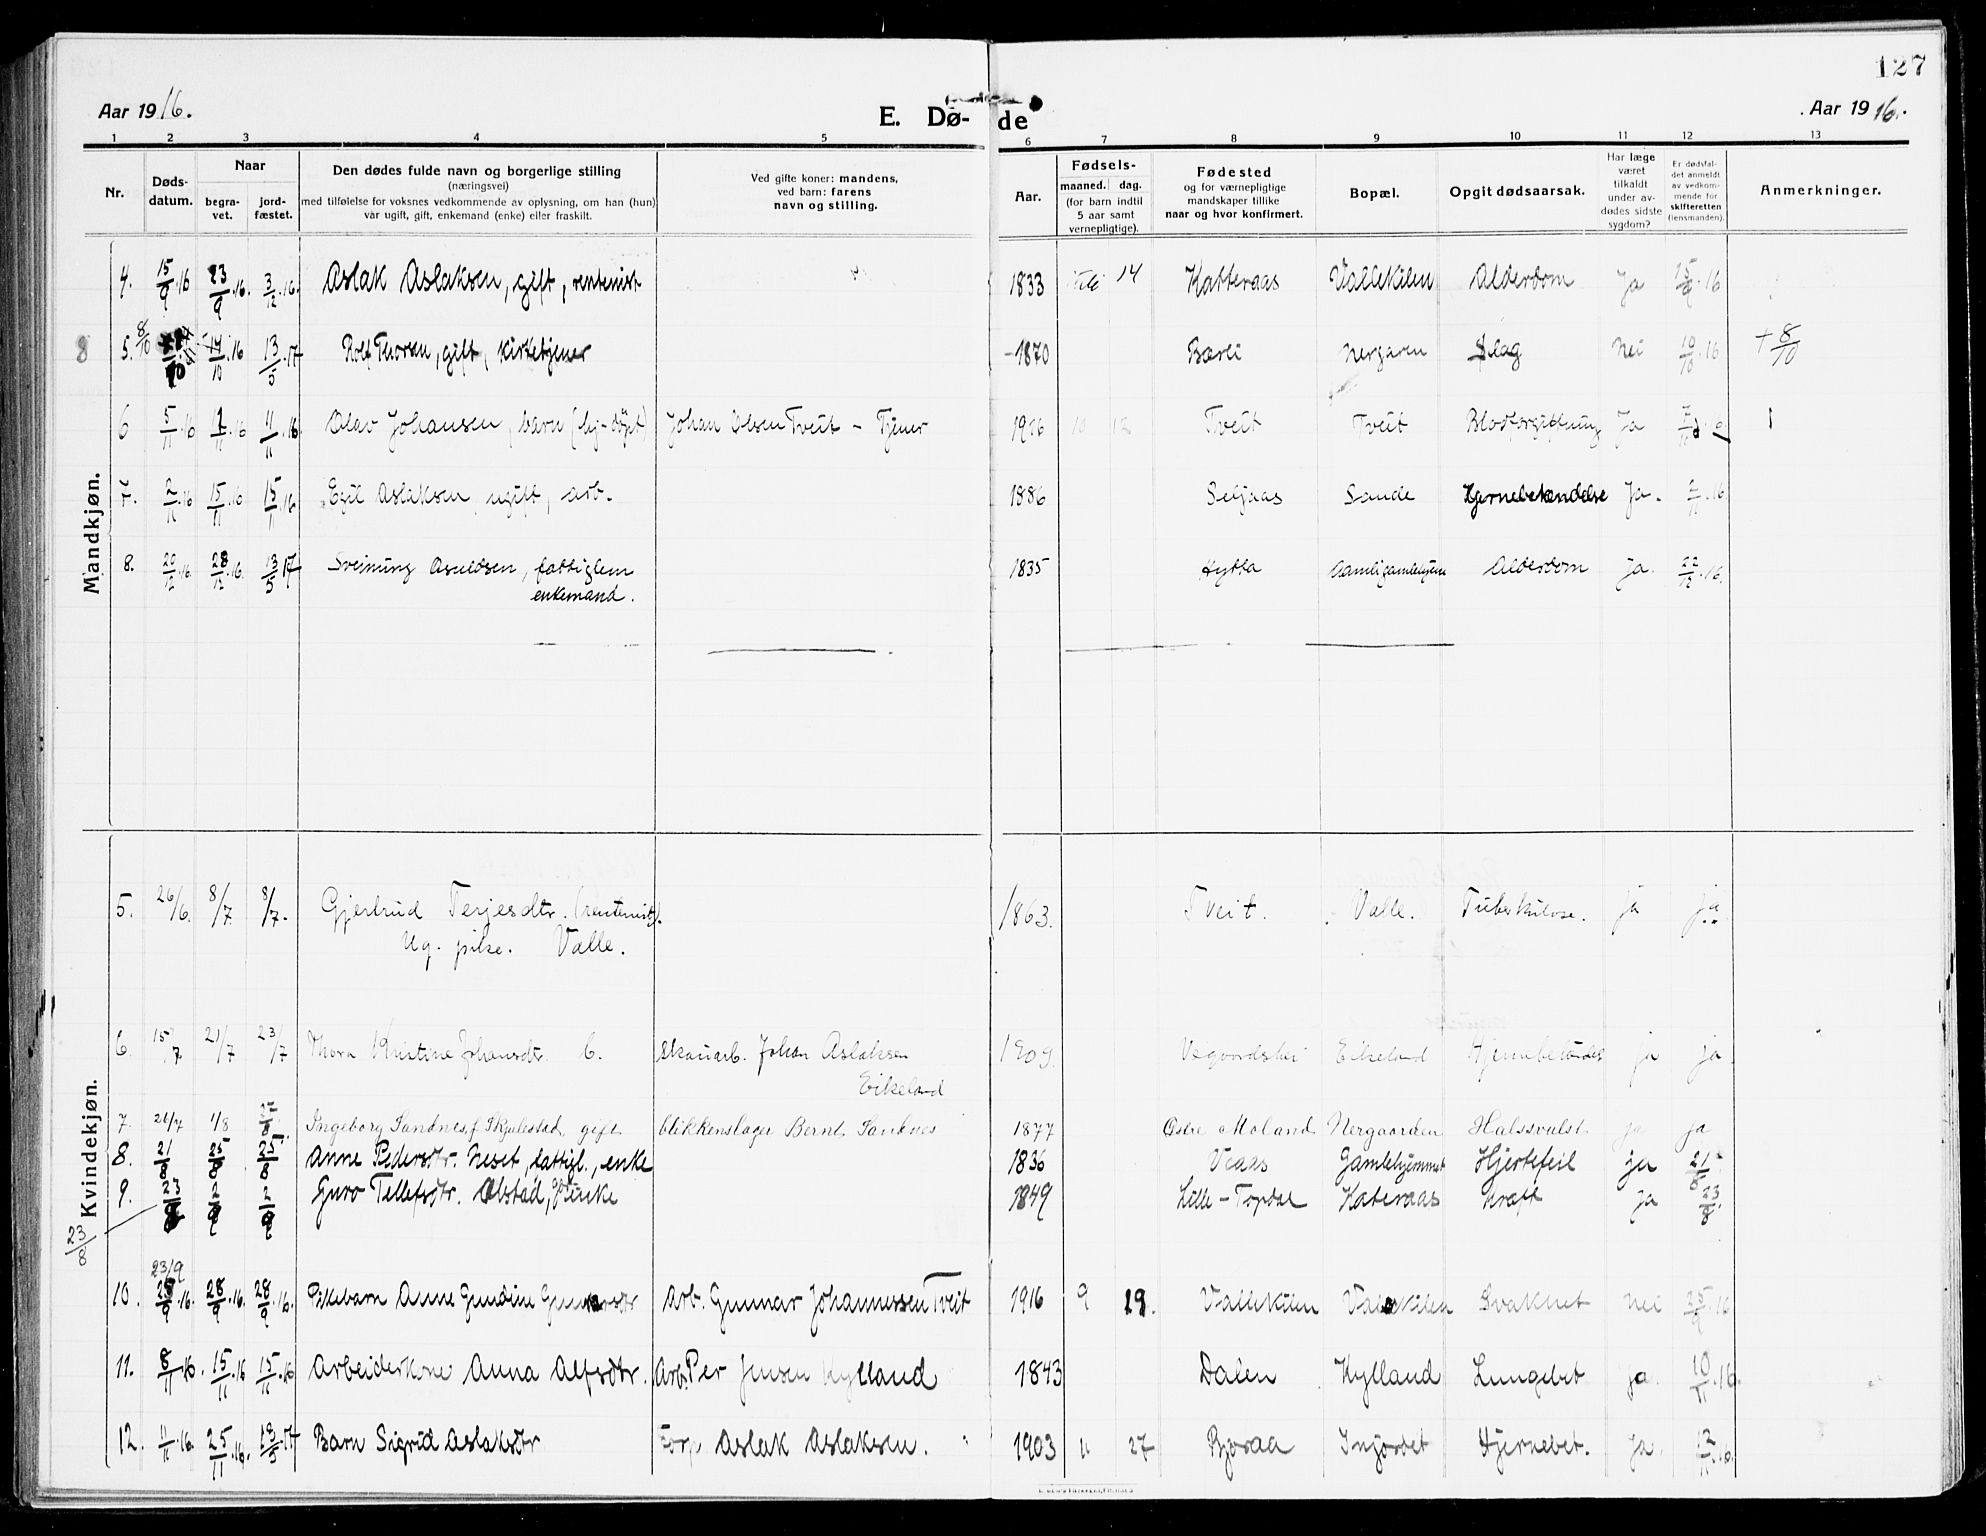 127
Aar 1916.
E. Dø-de
Aar 1916.
1 2 3 4 5 6 7 8 9 10 11 12 13
Nr.
Døds-
datum.
Naar
begra-
vet.
jord-
fæstet.
Den dødes fulde navn og borgerlige stilling
(næringsvei)
med tilføielse for voksnes vedkommende av oplysning, om han (hun)
var ugift, gift, enkemand (enke) eller fraskilt.
Ved gifte koner: mandens,
ved barn: farens
navn og stilling.
Aar.
Fødsels-
maaned. dag.
(for barn indtil
5 aar samt
vernepligtige).
Fødested
og for værnepligtige
mandskaper tillike
naar og hvor konfirmert.
Bopæl.
Opgit dødsaarsak.
Har læge
været
tilkaldt
under av-
dødes sidste
sygdom?
Er dødsfal-
det anmeldt
av vedkom-
mende for
skifteretten
(lensmanden).
Anmerkninger.
Mandkjøn.
4. 15/9.16 23/9.16. 3/12.16. Aslak Aslaksen, gift, rentenist 1833 14 Katteraas Vallekilen Alderdom Ja 15/9.16
8 5. 8/10 14/10.16 13/5.17 Rolf Thorsen, gift, kirketjener -1870 Bærli Nergaren Slag Nei 10/10.16 + 8/10
6 5/11.16 11/11.16 Olav Johansen, barn (hj-døpt) Johan Olsen Tveit - Tjener 1916 10 12 Tveit Tveit Blodforgiftning Ja 7/11.16
7. 2/11.16 15/11.16 15/11.16 Egil Aslaksen, ugift, arb. 1886 Seljaas Sande Hjernebetændelse Ja. 2/11.16.
8. 20/12.16. 28/12.16. 13/5.17 Sveinung Asuldsen, fattiglem 1835 Hytta Aamligamlehjem Alderdom ja. 22/12.16.
enkemand.
Kvindekjøn.
5. 26/6. 8/7. 8/7. Gjertrud Terjesdtr. (rentenist). 1863. Tveit. Valle. Tuberkulose. ja ja
Ug. pike. Valle.
6. 15/7 21/7 23/7 Thora Kristine Johansdtr. b. skouarb. Johan Aslaksen 1909. Vegaardshei Eikeland ja ja
Eikeland
7. 26/7 1/8 Ingeborg Sandnes, f. Skjulestad, gift blikkenslager Bernt Sandnes 1877 Østre Moland Nergaarden Halssvulst ja ja
8. 21/8 25/8 25/8 Anne Pedersdtr. Neset, fattigl., enke 1836 Veaas Gamlehjemmet Hjertefeil ja 21/8
9. 23/8 Guro Tellefsdtr. Olstad, enke 1849 Lille-Topdal Kateraas kræft ja 23/8.
10. 23/9 28/9.16. 28/9.16. Pikebarn Anne Gundine Arb. Gunnar Johannessen Tveit 1916 9 19. Vallekilen Vallekilen Svakhet nei 25/9.16
11. 8/11.16. 15/11.16 15/11.16 Arbeiderkone Anna Alfsdtr. Arb. Per Jensen Hylland 1843 Dalen Hylland Lungebet. ja. 10/11.16.
12. 11/11.16. 25/11.16. 13/5.17 Barn Sigrid Aslaksdtr Forp. Aslak Aslaksen. 1903 11 27 Bjoraa Injordet Hjernebet. Ja. 12/11.16.